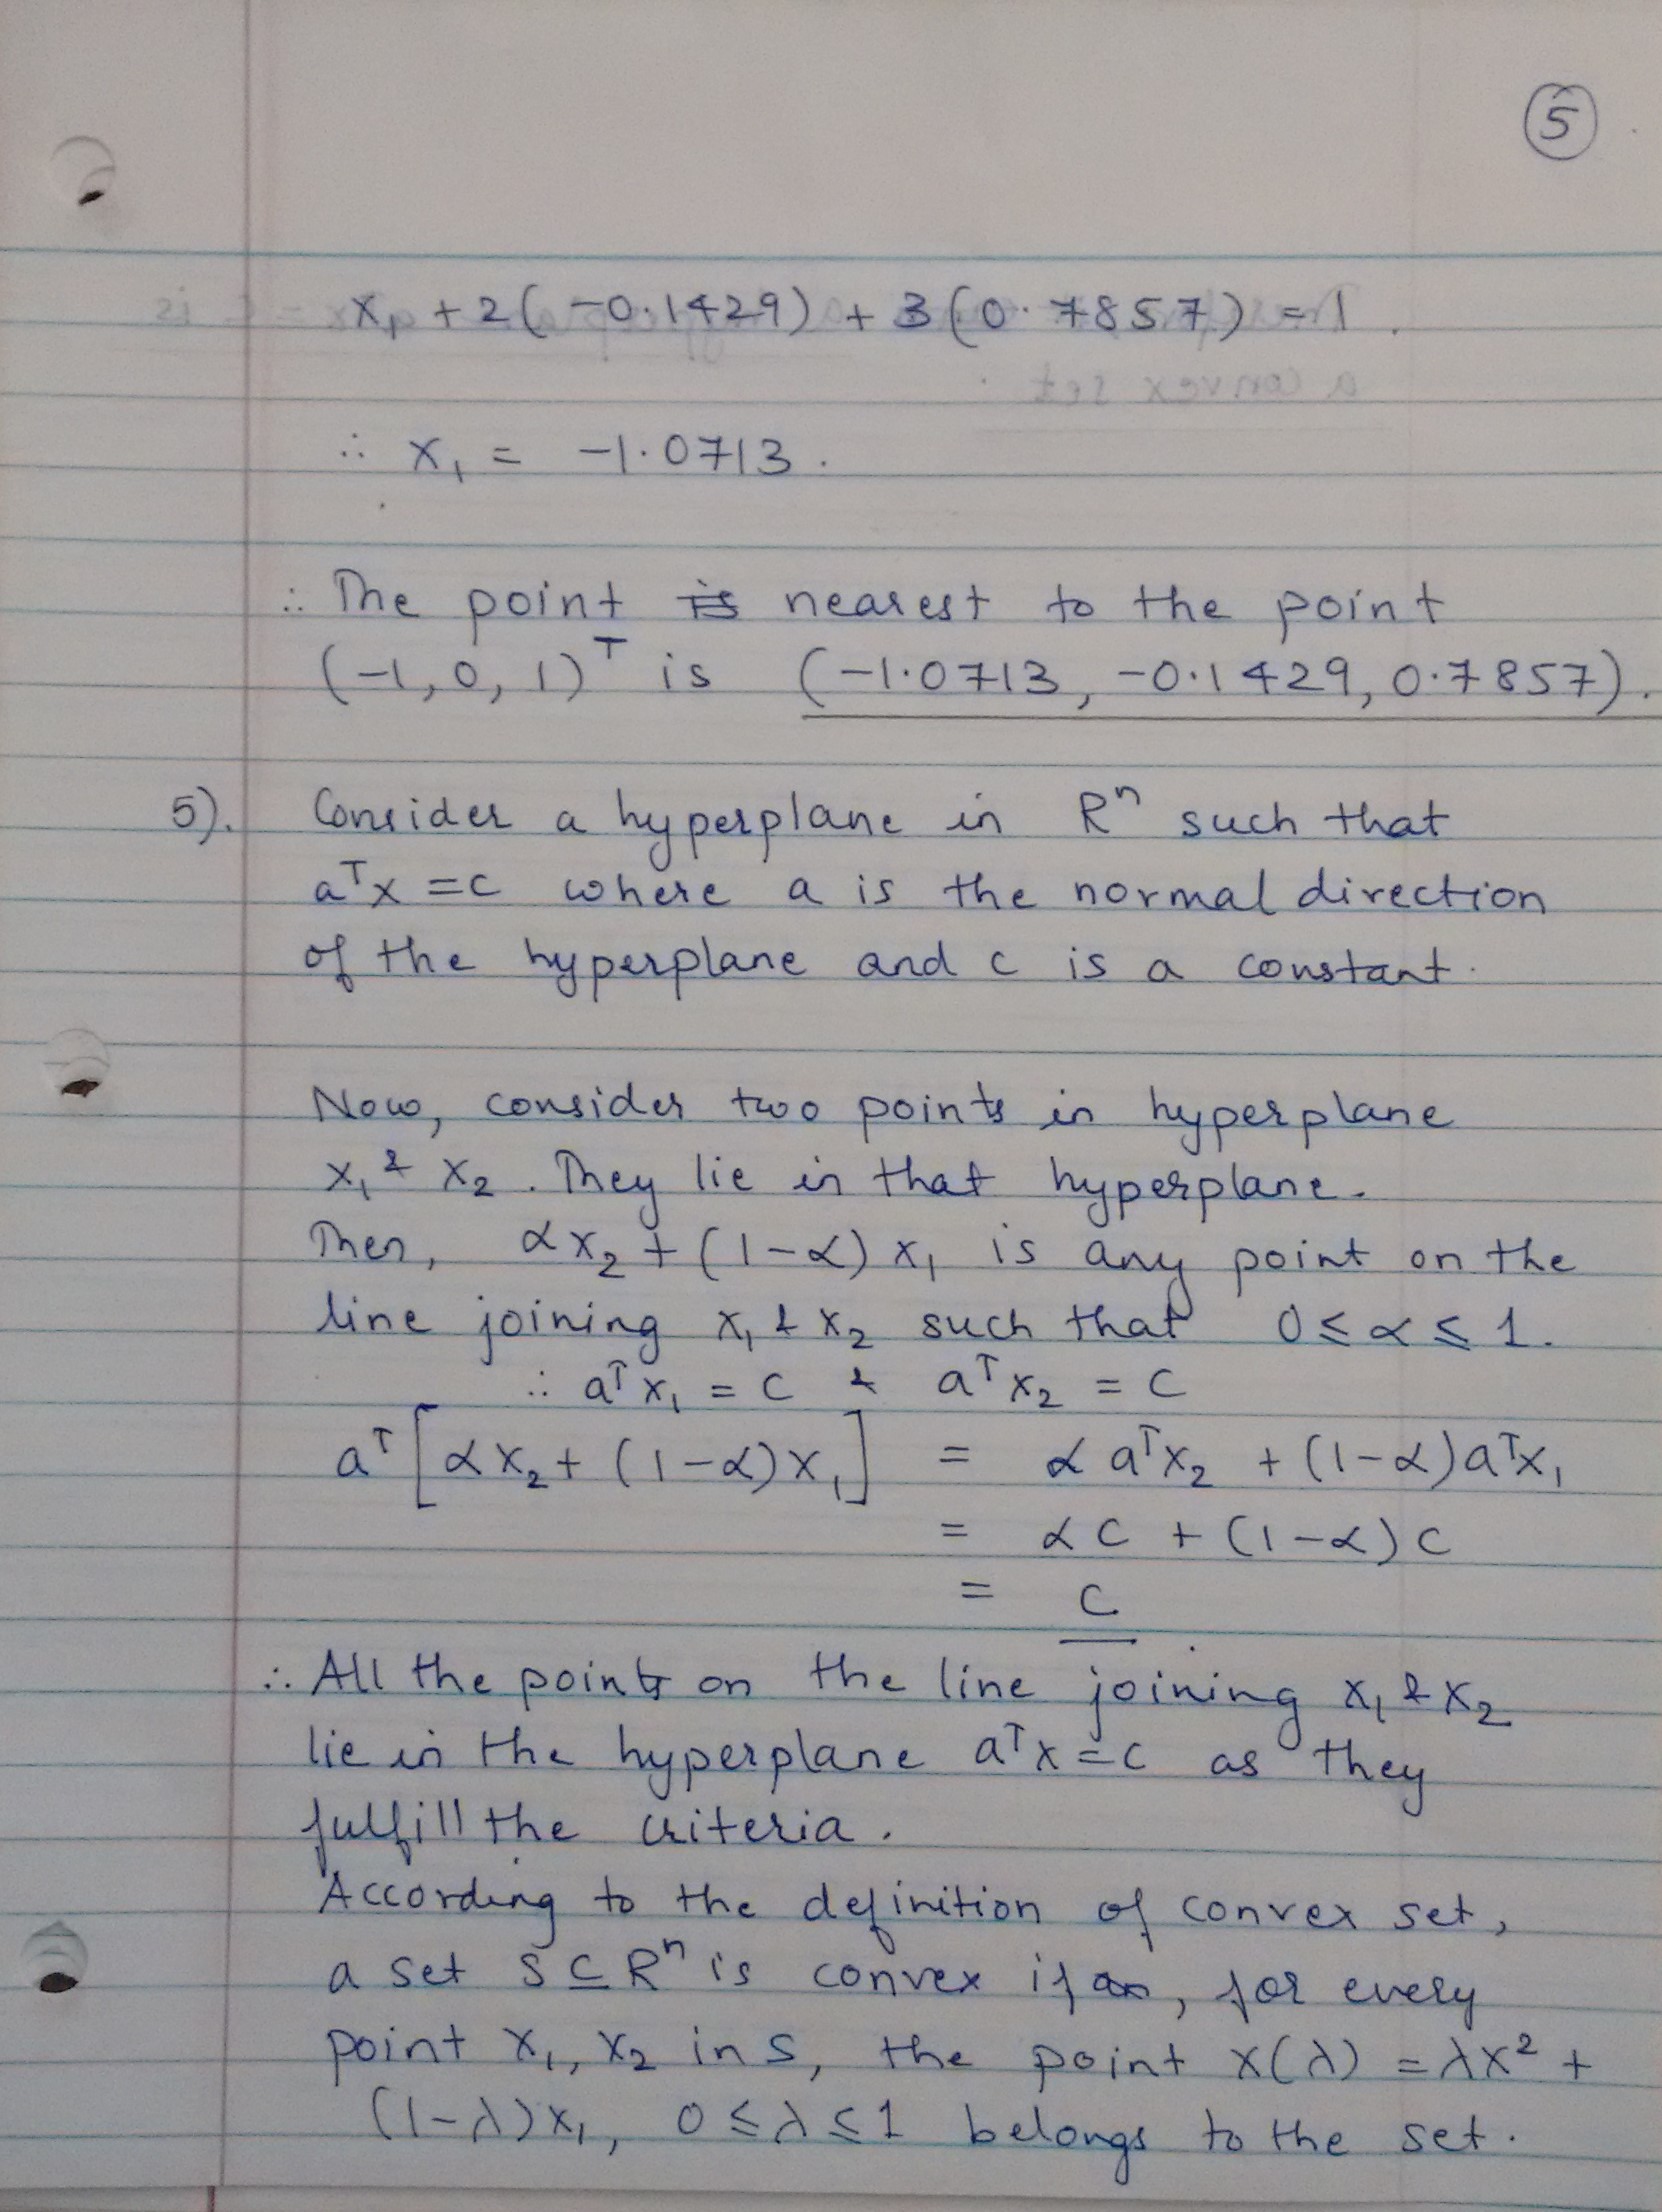 5
x₁ + 2(-0.1429) + 3(0.7857) = 1.
∴ x₁ = -1.0713.
∴ The point nearest to the point
(-1, 0, 1)ᵀ is (-1.0713, -0.1429, 0.7857).
5). Consider a hyperplane in Rⁿ such that
aᵀx = c where a is the normal direction
of the hyperplane and c is a constant.
Now, consider two points in hyperplane
x₁ & x₂. They lie in that hyperplane.
Then, αx₂ + (1-α) x₁ is any point on the
line joining x₁ & x₂ such that 0 ≤ α ≤ 1.
∴ aᵀx₁ = c & aᵀx₂ = c
aᵀ[αx₂ + (1-α)x₁] = α aᵀx₂ + (1-α)aᵀx₁
= αc + (1-α)c
= c
∴ All the points on the line joining x₁ & x₂
lie in the hyperplane aᵀx = c as they
fulfill the criteria.
According to the definition of convex set,
a set S ⊆ Rⁿ is convex if, for every
point x₁, x₂ in S, the point x(λ) = λx² +
(1-λ)x₁, 0 ≤ λ ≤ 1 belongs to the set.